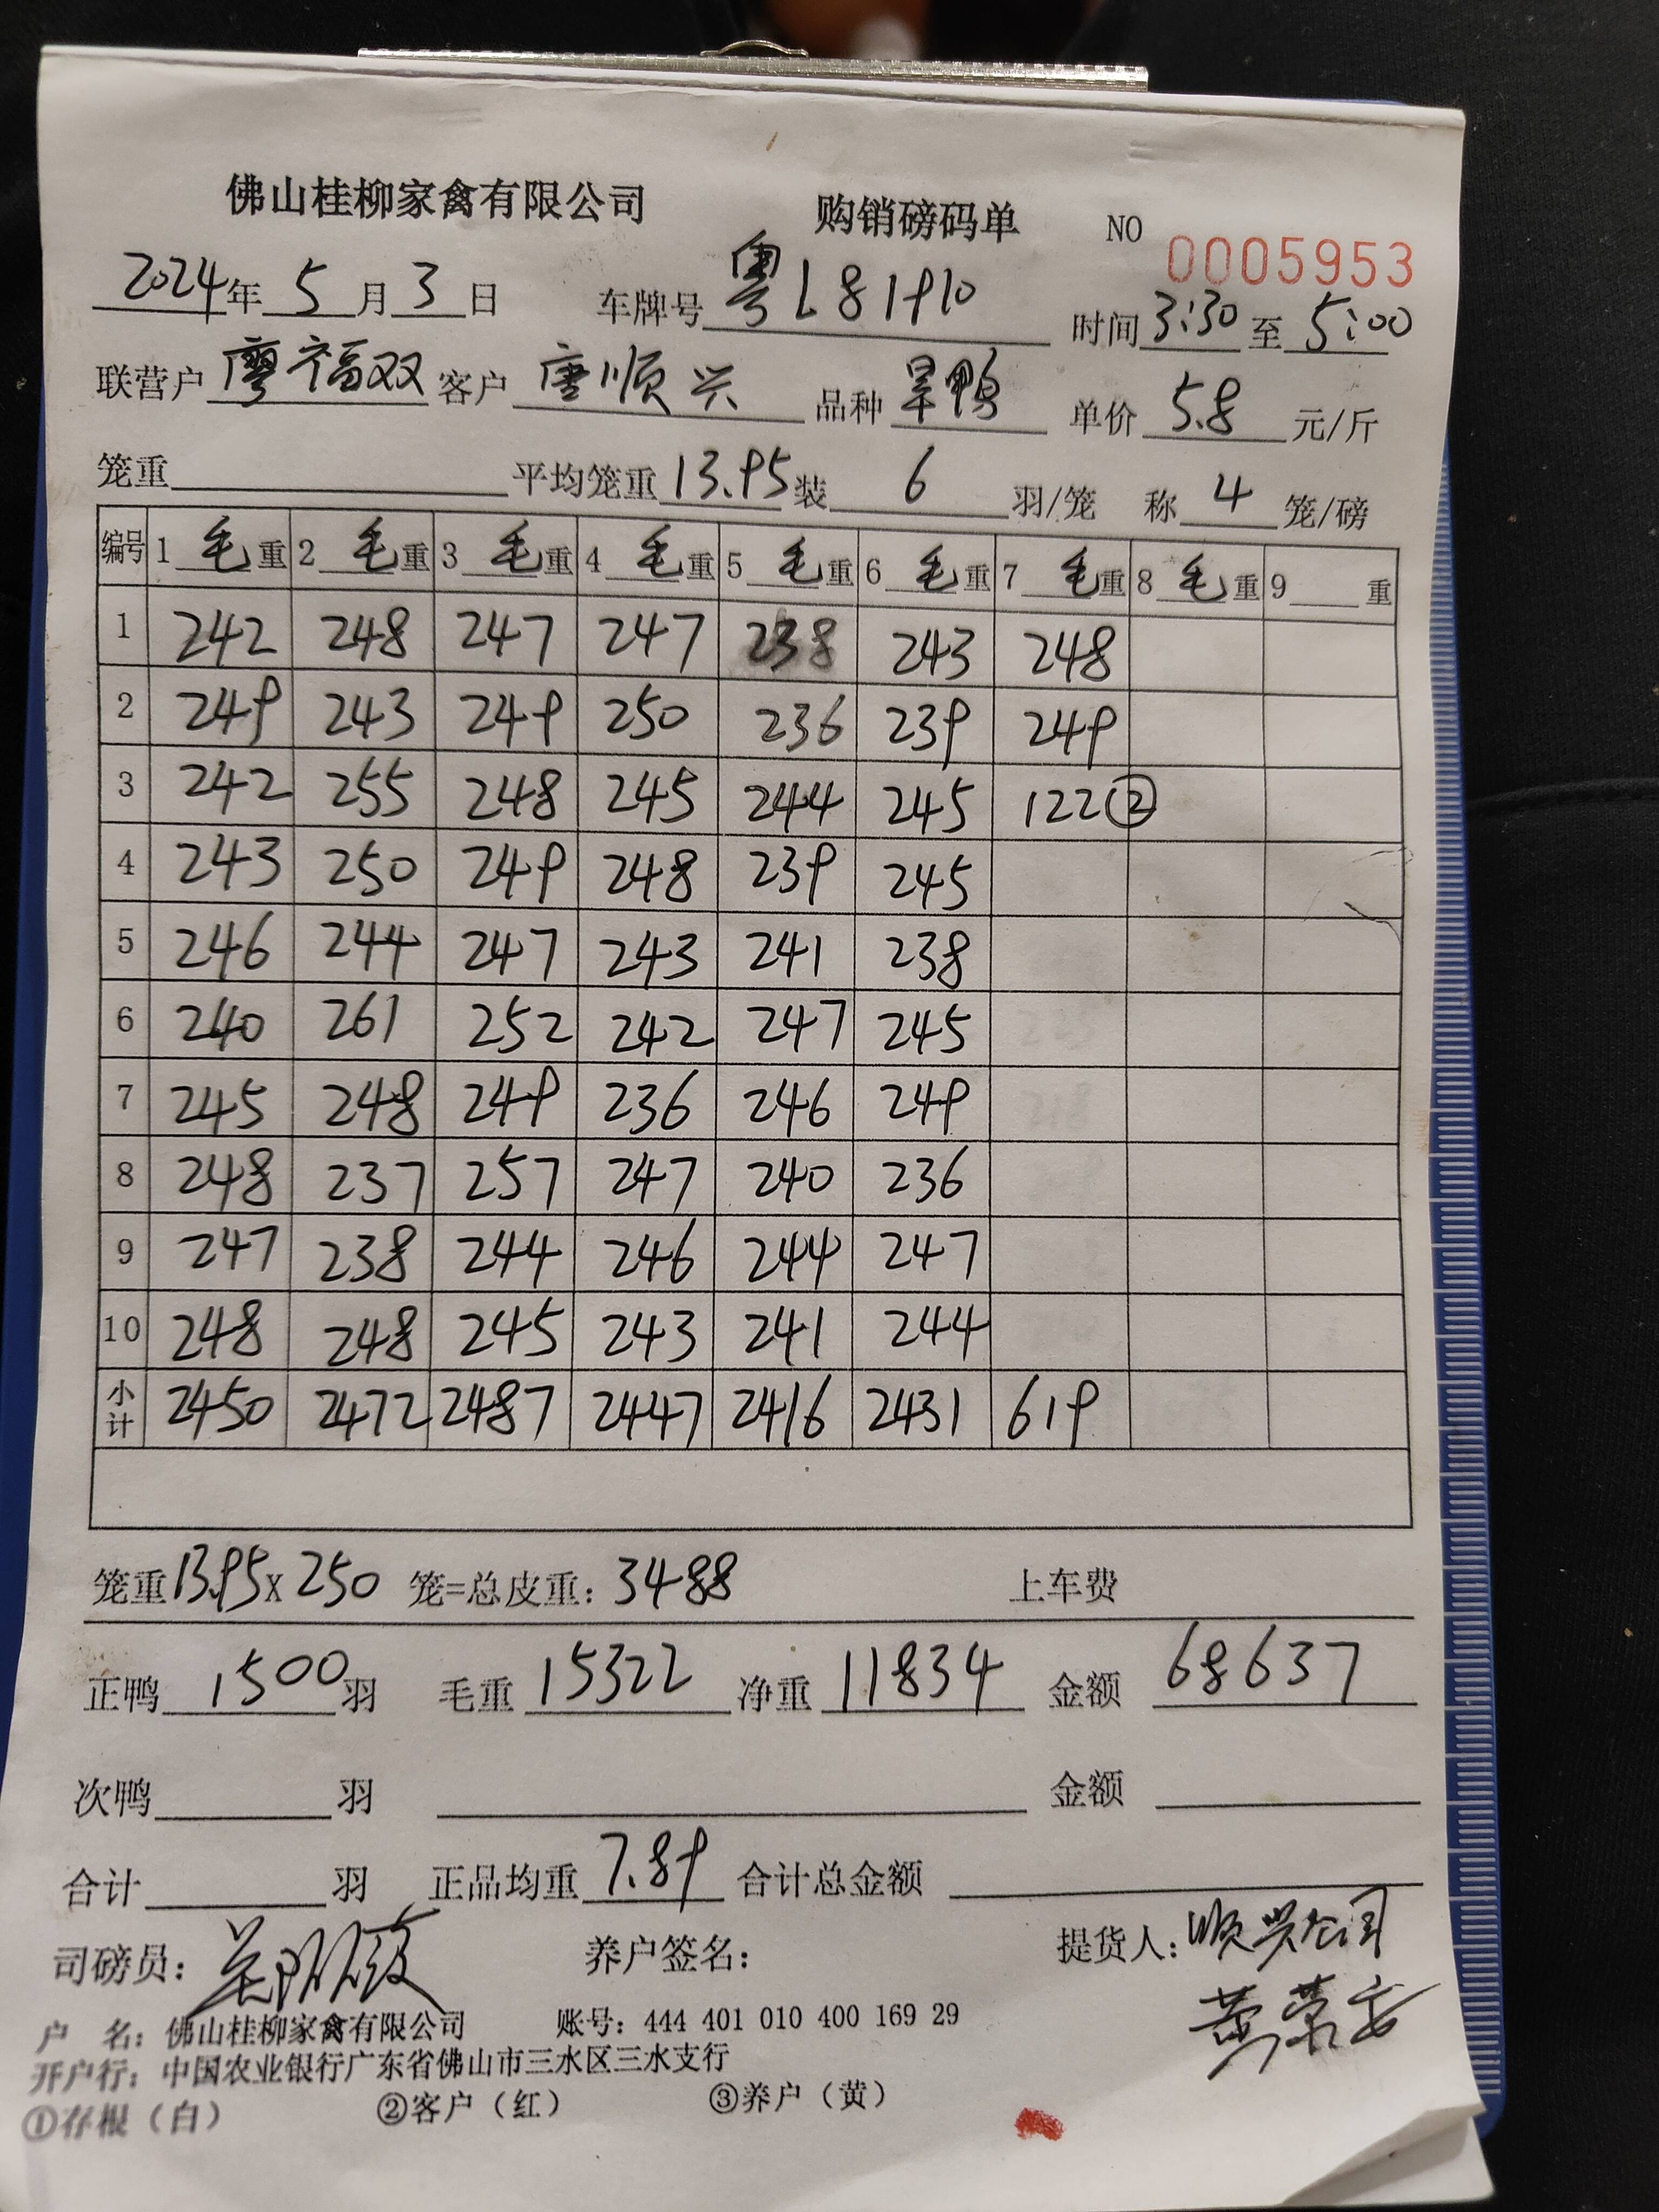 佛山桂柳家禽有限公司 购销磅码单 NO 0005953
2024年 5 月 3 日 车牌号 粤L81910 时间 3:30 至 5:00
联营户 廖福双 客户 唐顺兴 品种 旱鸭 单价 5.8 元/斤
笼重 平均笼重 13.95 装 6 羽/笼 称 4 笼/磅
编号 1 毛重 2 毛重 3 毛重 4 毛重 5 毛重 6 毛重 7 毛重 8 毛重 9 重
1 242 248 247 247 238 243 248
2 249 243 249 250 236 239 249
3 242 255 248 245 244 245 122②
4 243 250 249 248 239 245
5 246 244 247 243 241 238
6 240 261 252 242 247 245
7 245 248 249 236 246 249
8 248 237 257 247 240 236
9 247 238 244 246 244 247
10 248 248 245 243 241 244
小计 2450 2472 2487 2447 2416 2431 619
笼重 13.95 x 250 笼=总皮重: 3488 上车费
正鸭 1500 羽 毛重 15322 净重 11834 金额 68637
次鸭 羽 金额
合计 羽 正品均重 7.89 合计总金额
司磅员: 养户签名: 提货人: 顺兴公司
户 名: 佛山桂柳家禽有限公司 账号: 444 401 010 400 169 29
开户行: 中国农业银行广东省佛山市三水区三水支行
①存根（白） ②客户（红） ③养户（黄）